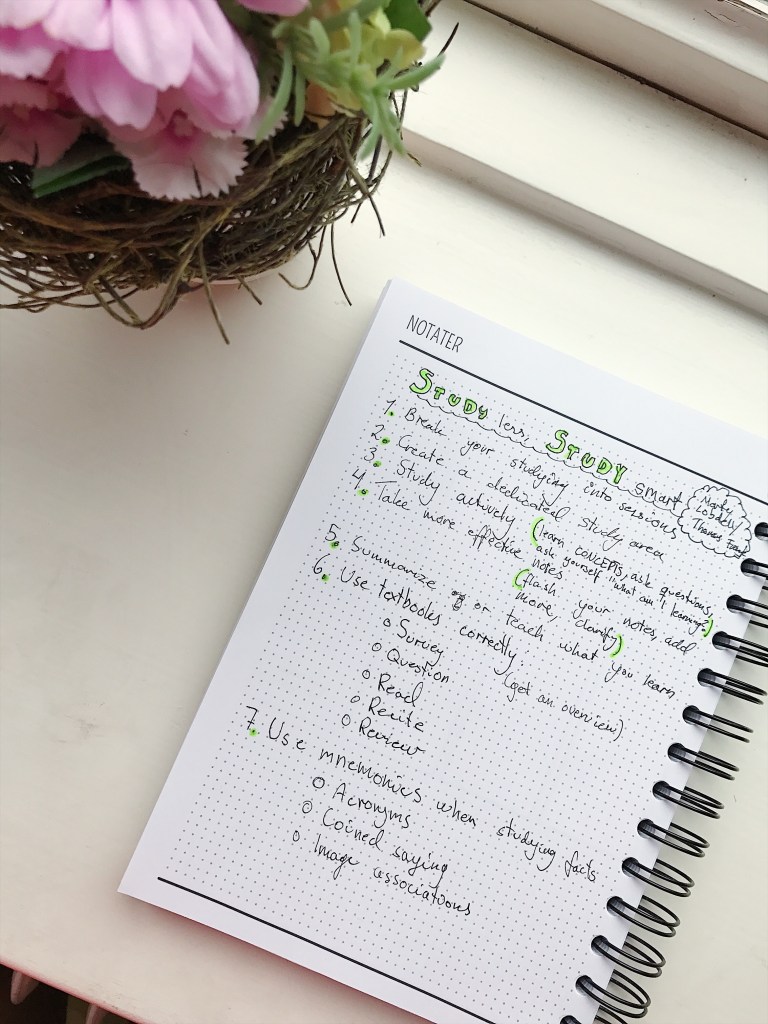 NOTATER
STUDY less, STUDY smart
Marty
Lobdell/
Thanes
1. Break your studying into sessions
2. Create a dedicated study area
3. Study actively (learn CONCEPTS, ask questions,
ask yourself "what am I learning?")
4. Take more effective notes
(flash your notes, add
more, clarify)
5. Summarize or teach what you learn
6. Use textbooks correctly:
o Survey (get an overview)
o Question
o Read
o Recite
o Review
7. Use mnemonics when studying facts
o Acronyms
o Coined saying
o Image associations